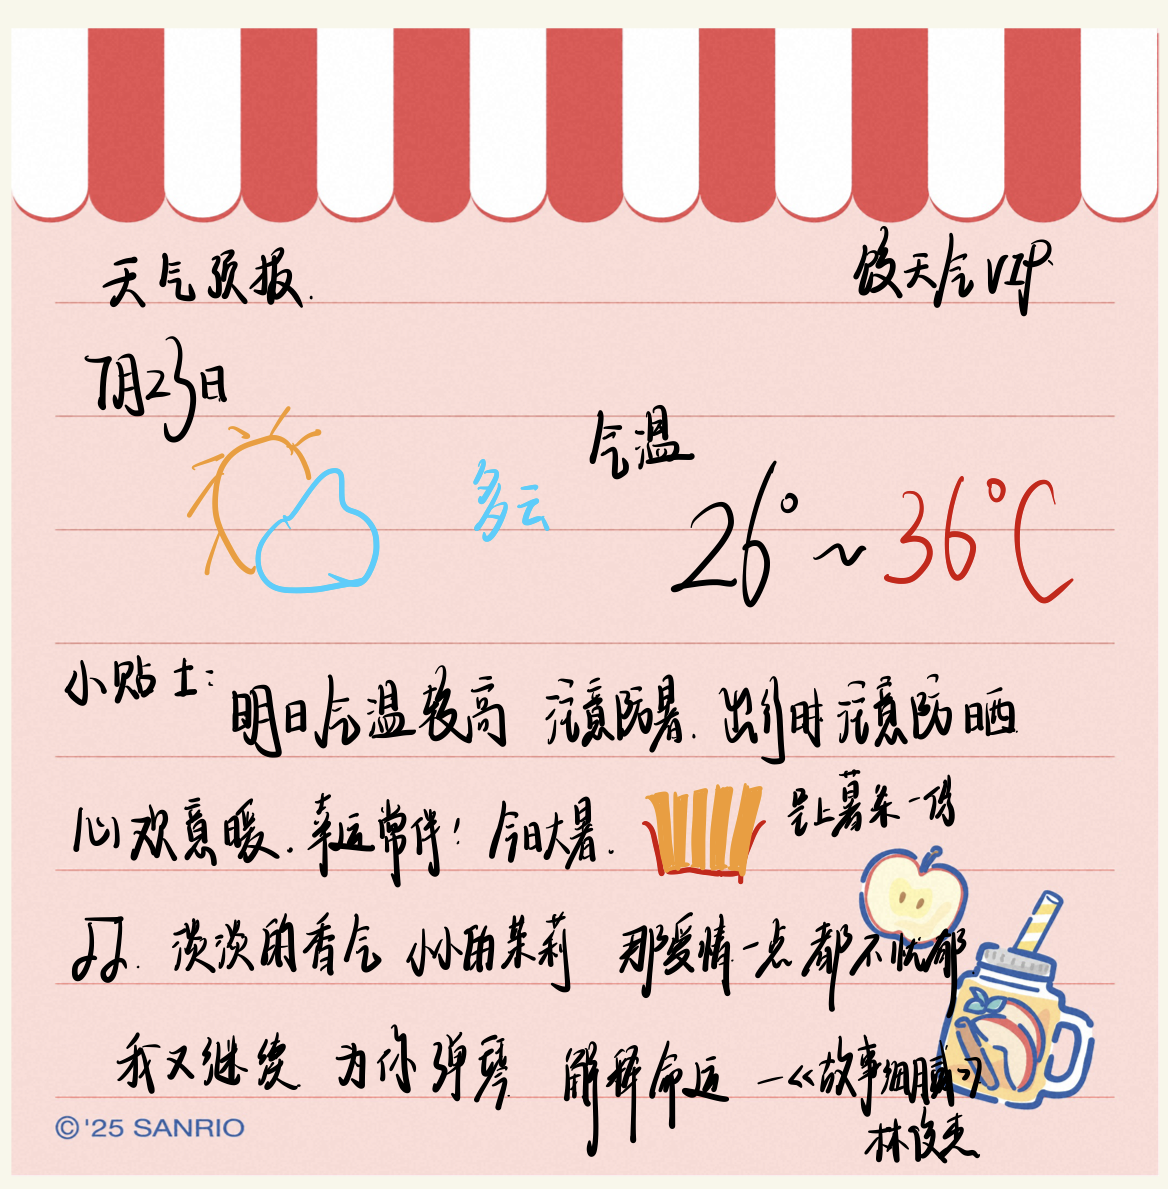 天气预报.
饺天气VIP
7月23日
气温
多云
26°~36°C
小贴士:
明日气温较高 注意防暑. 出行时注意防晒
心欢意暖. 幸运常伴! 今日大暑.
呈上薯条一份
♫. 淡淡的香气 小小的茉莉 那爱情一点都不忧郁
我又继续 为你弹琴 解释命运 —《故事细腻》
林俊杰
©'25 SANRIO